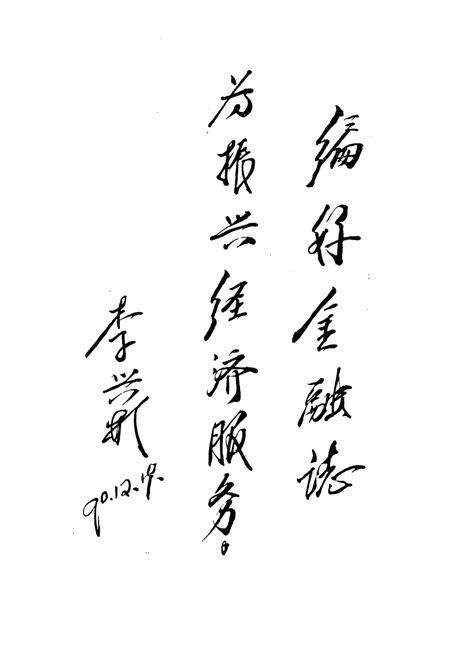 编好金融志
为振兴经济服务。
李兴彬
90.12.17.